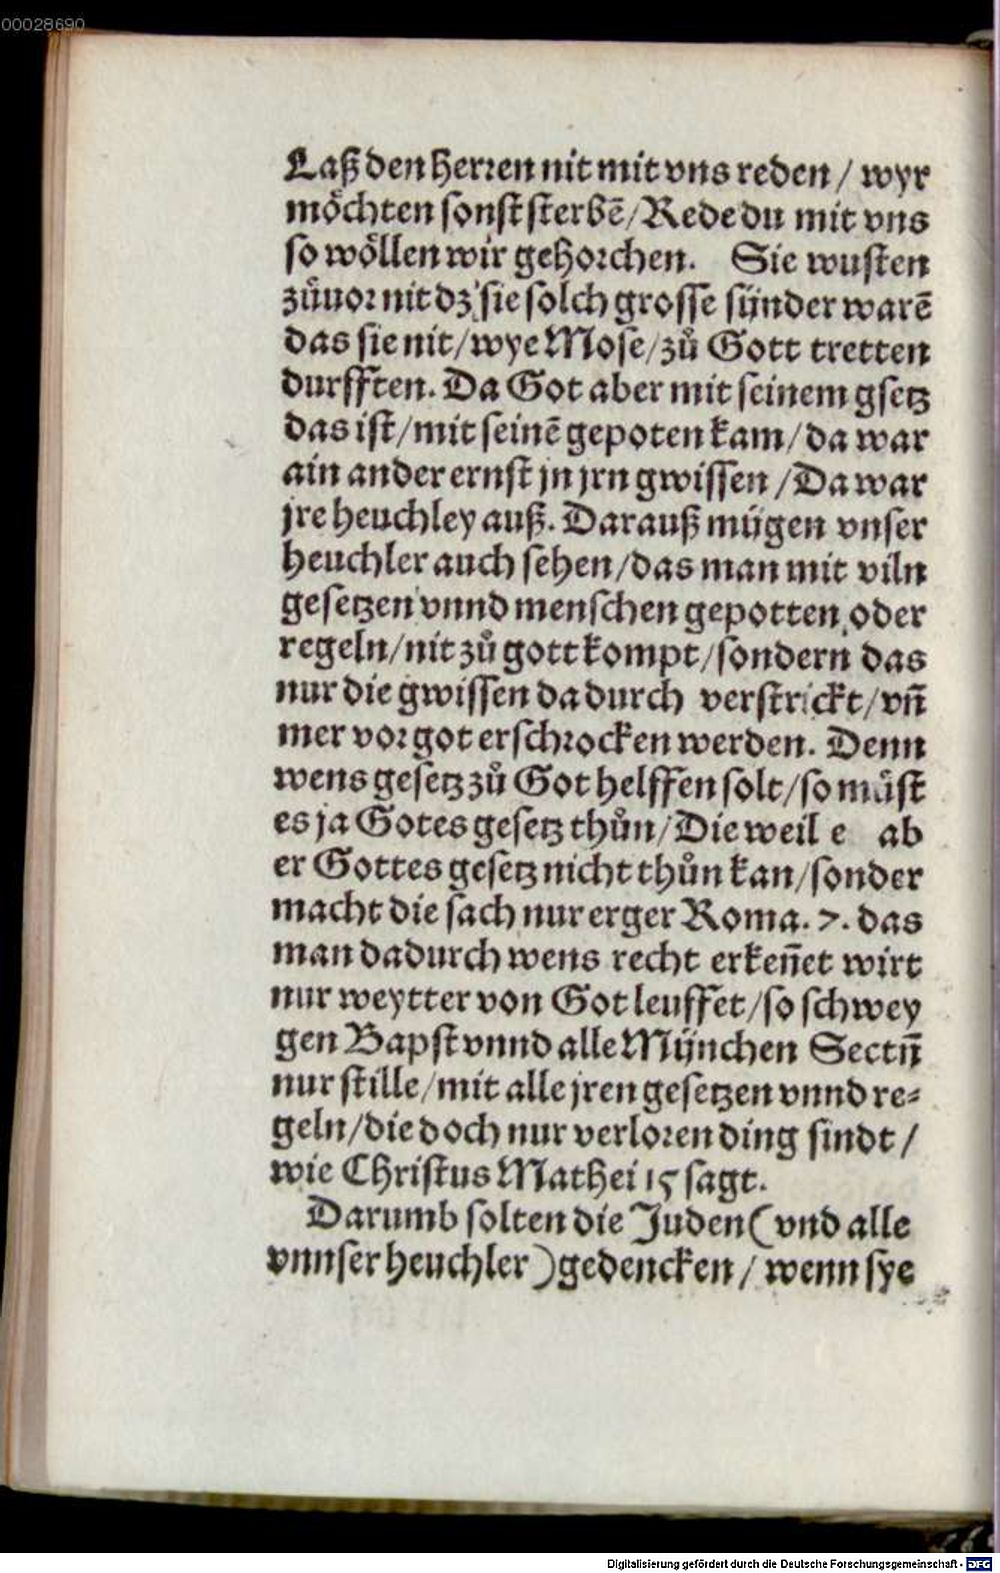 00028690
Laß den herren nit mit vns reden / wyr
möchten sonst sterbē / Rede du mit vns
so wöllen wir gehorchen. Sie wusten
züuor nit dz sie solch grosse sünder warē
das sie nit / wye Mose / zů Gott tretten
durfften. Da Got aber mit seinem gsetz
das ist / mit seinē gepoten kam / da war
ain ander ernst jn jrn gwissen / Da war
jre heuchley auß. Darauß mügen vnser
heuchler auch sehen / das man mit viln
gesetzen vnnd menschen gepotten oder
regeln / nit zů gott kompt / sondern das
nur die gwissen da durch verstrickt / vñ
mer vor got erschrocken werden. Denn
wens gesetz zů Got helffen solt / so müst
es ja Gotes gesetz thůn / Die weil e ab
er Gottes gesetz nicht thůn kan / sonder
macht die sach nur erger Roma. 7. das
man dadurch wens recht erkeñet wirt
nur weytter von Got leuffet / so schwey
gen Bapst vnnd alle München Sectñ
nur stille / mit alle jren gesetzen vnnd re⸗
geln / die doch nur verloren ding sindt /
wie Christus Mathei 15 sagt.
Darumb solten die Juden ( vnd alle
vnnser heuchler ) gedencken / wenn sye
Digitalisierung gefördert durch die Deutsche Forschungsgemeinschaft - DFG